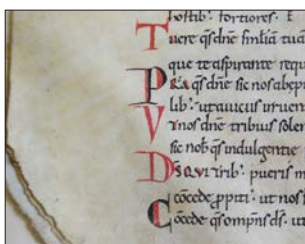 hostib: fortiores. E
Tuere q̄s dn̄e familiā tuā
que te aspirante requ
PRA q̄s dn̄e sic nos
lib: ut auctus
V nos dn̄e tribuis solen
sic nob q̄s indulgentie
DS QVI trib: pueris m
Concede ꝓpiti: ut nos
Concede q̄s omp̄s ds. ut